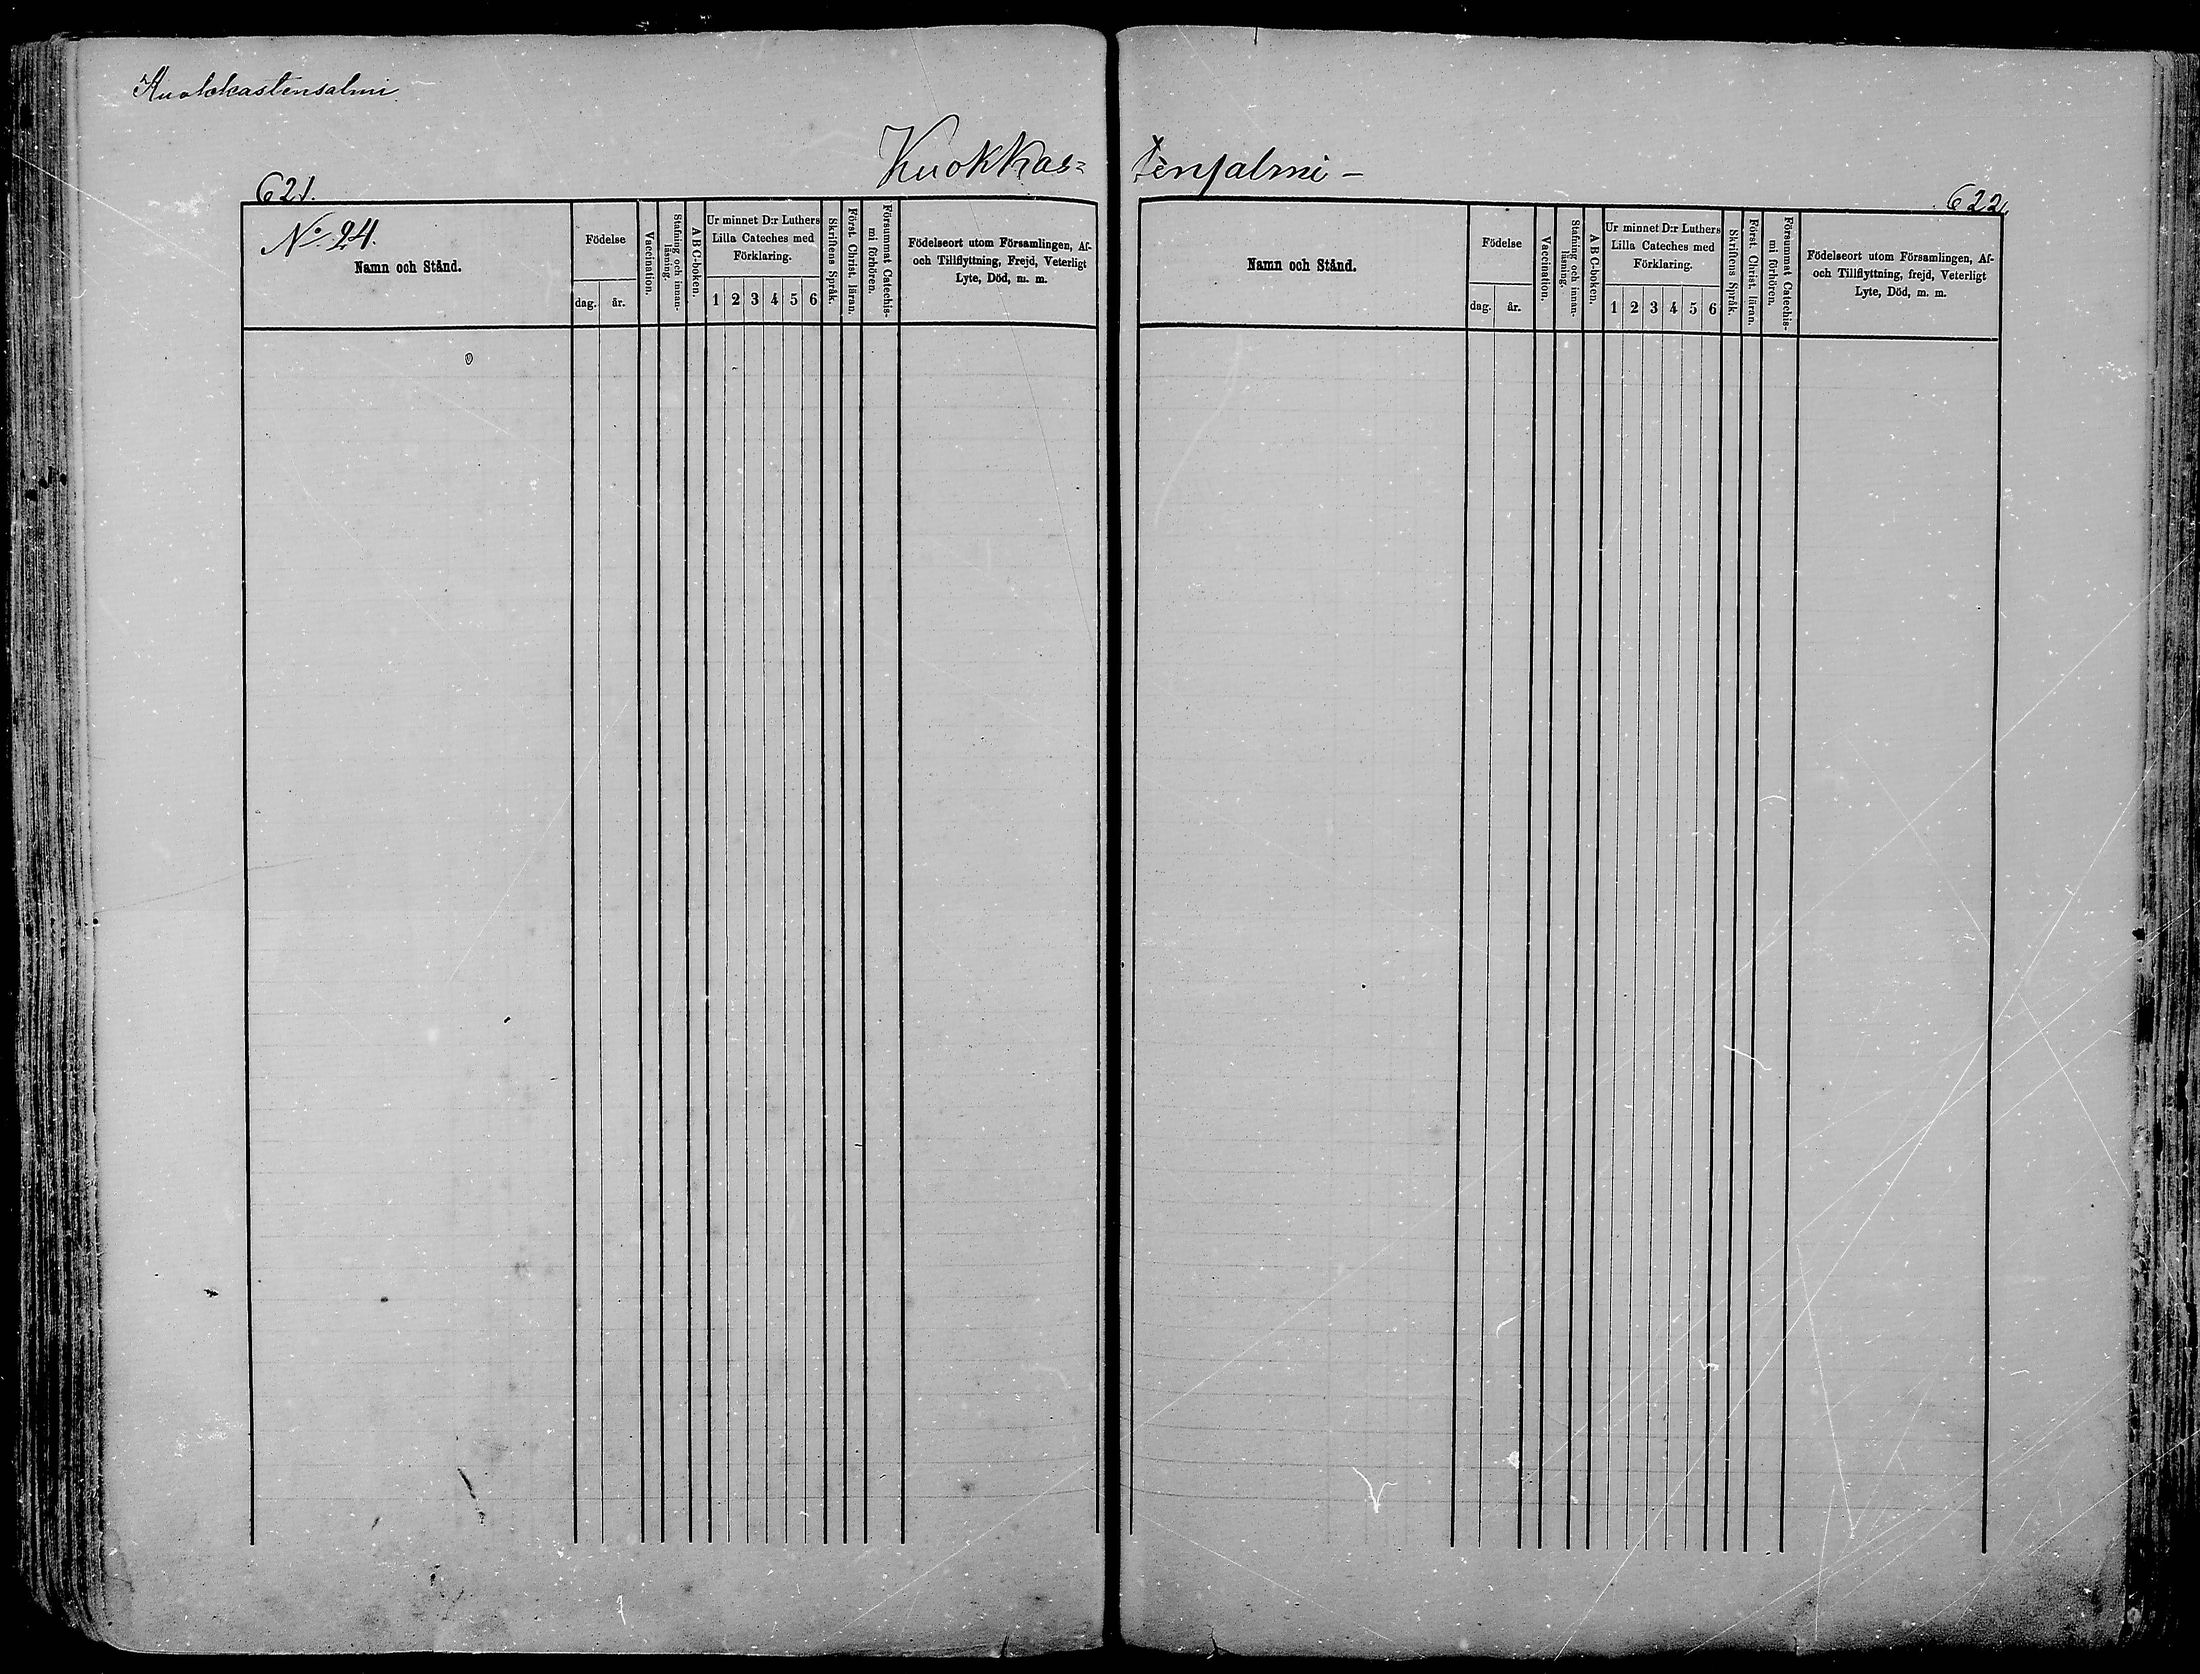 Kuokkastensalmi
Kuokkas= tensalmi –
621.
622.
No 24.
Namn och Stånd.
Födelse
dag. år.
Vaccination.
Stafning och innan-
läsning.
A B C-boken.
Ur minnet D:r Luthers
Lilla Cateches med
Förklaring.
1 2 3 4 5 6
Skriftens Språk.
Först. Christ. läran.
Försummat Catechis-
mi förhören.
Födelseort utom Församlingen, Af-
och Tillflyttning, Frejd, Veterligt
Lyte, Död, m. m.
Namn och Stånd.
Födelse
dag. år.
Vaccination.
Stafning och innan-
läsning.
A B C-boken.
Ur minnet D:r Luthers
Lilla Cateches med
Förklaring.
1 2 3 4 5 6
Skriftens Språk.
Först. Christ. läran.
Försummat Catechis-
mi förhören.
Födelseort utom Församlingen, Af-
och Tillflyttning, frejd, Veterligt
Lyte, Död, m. m.